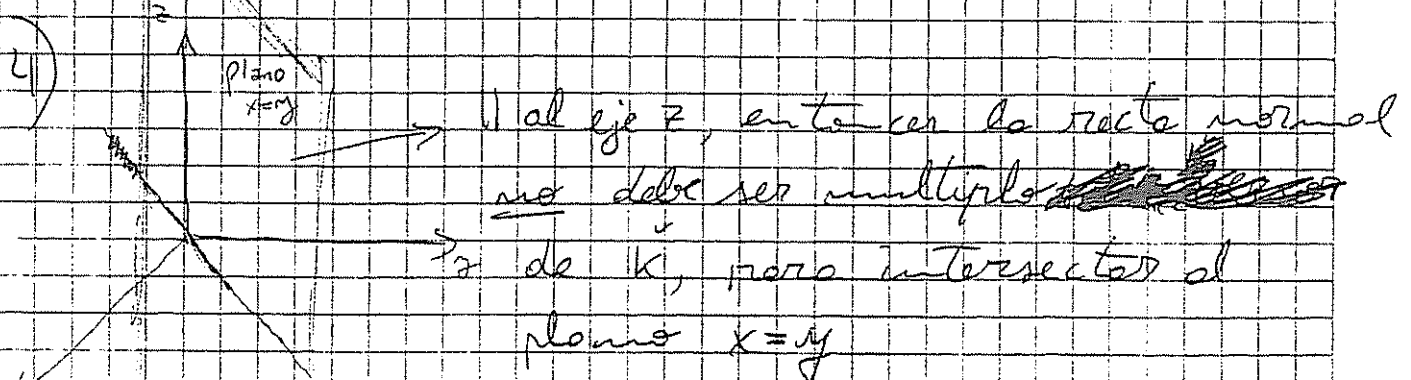 4)
z
plano
x=y
y
// al eje z, entonces la recta normal
no debe ser multiplo
de k̆, para intersectar al
plano x=y